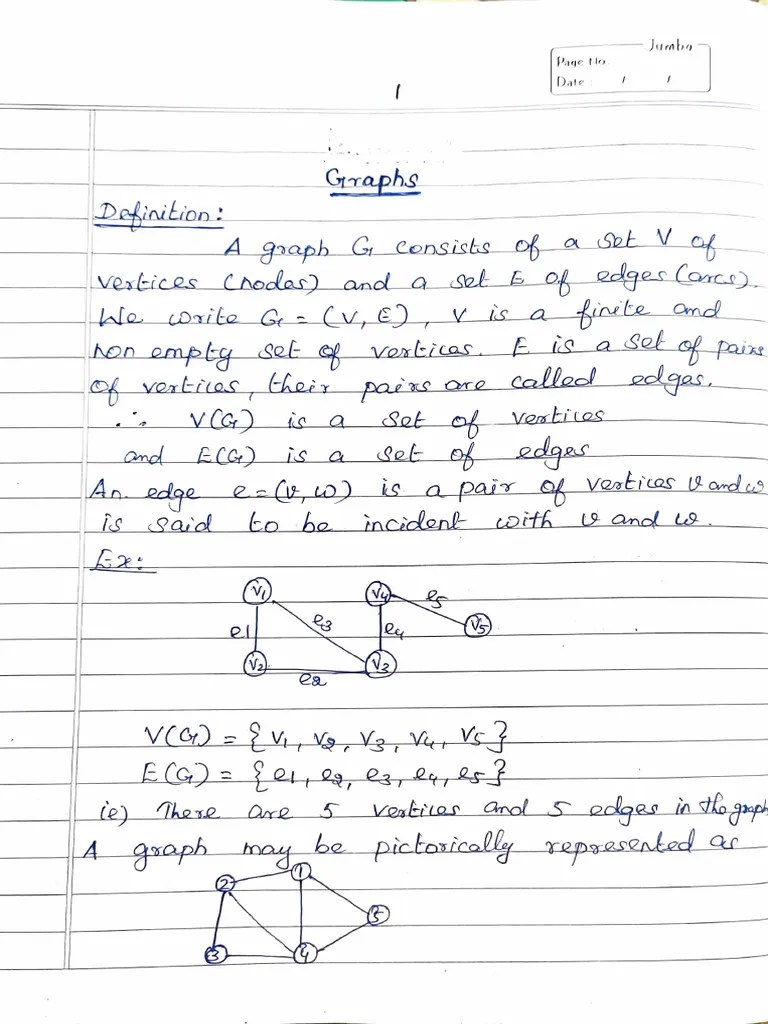 Jumbo
Page No.
Date : / /
1
Graphs
Definition:
A graph G consists of a set V of
vertices (nodes) and a set E of edges (arcs).
We write G = (V, E), V is a finite and
non empty set of vertices. E is a set of pairs
of vertices, their pairs are called edges.
∴ V(G) is a set of vertices
and E(G) is a set of edges
An edge e=(v, w) is a pair of vertices v and w
is said to be incident with v and w.
Ex:
V1 V4 e5
e1 e3 e4 V5
V2 e2 V3
V(G) = {V1, V2, V3, V4, V5}
E(G) = {e1, e2, e3, e4, e5}
ie) There are 5 vertices and 5 edges in the graph
A graph may be pictorically represented as
2 1
5
3 4